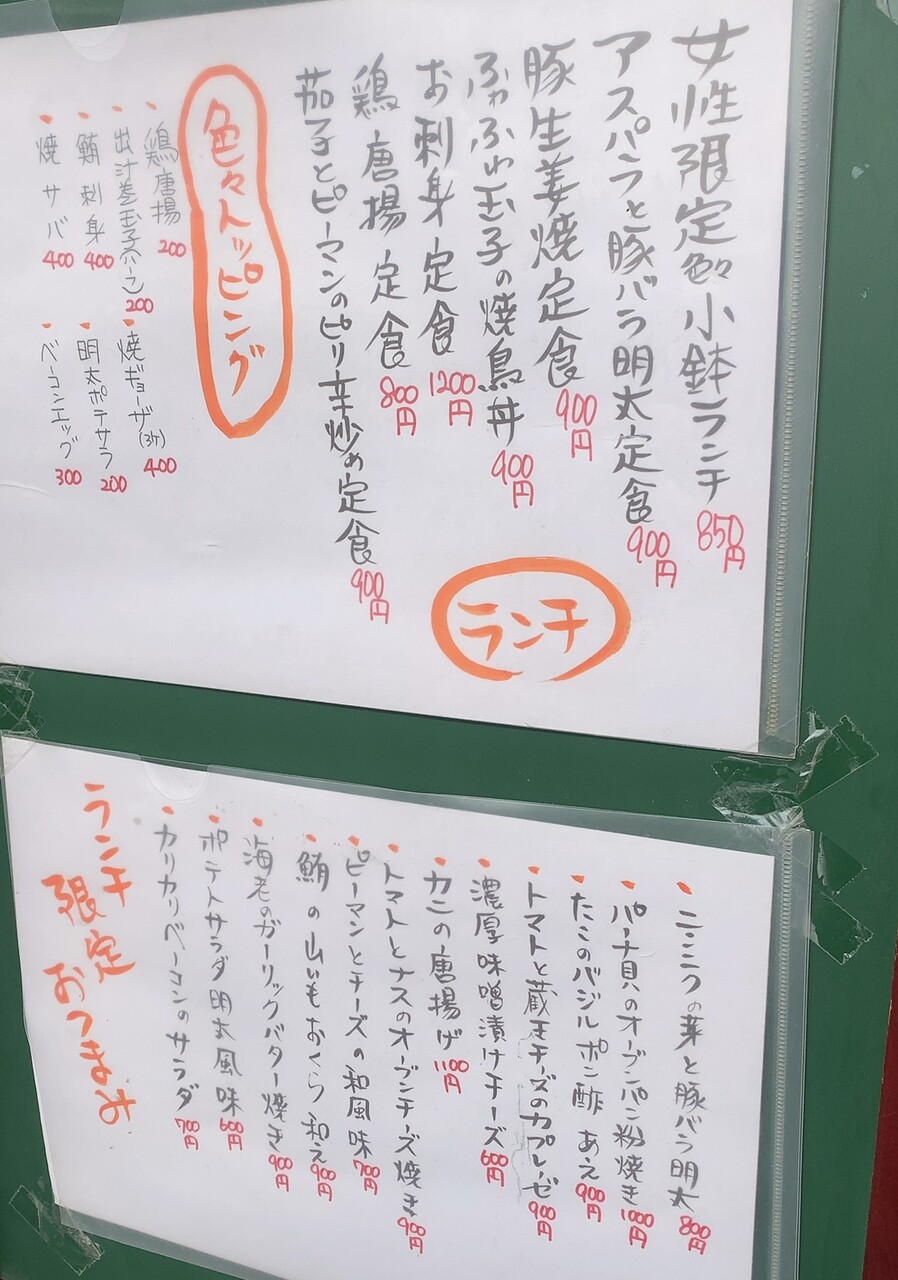 女性限定色々小鉢ランチ 850円
アスパラと豚バラ明太定食 900円
豚生姜焼定食 900円
ふわふわ玉子の焼鳥丼 900円
お刺身定食 1200円
鶏唐揚定食 800円
茄子とピーマンのピリ辛炒め定食 900円
ランチ
色々トッピング
・鶏唐揚 200
・出汁巻玉子(ハーフ) 200
・鮪刺身 400
・焼サバ 400
・焼ギョーザ(3ケ) 400
・明太ポテサラ 200
・ベーコンエッグ 300
・ニンニクの芽と豚バラ明太 800円
・パーナ貝のオーブンパン粉焼き 1000円
・たこのバジルポン酢あえ 900円
・トマトと蔵王チーズのカプレーゼ 900円
・濃厚味噌漬けチーズ 600円
・カニの唐揚げ 1100円
・トマトとナスのオーブンチーズ焼き 900円
・ピーマンとチーズの和風味 700円
・鮪の山いもおくら和え 900円
・海老のガーリックバター焼き 900円
・ポテトサラダ明太風味 600円
・カリカリベーコンのサラダ 700円
ランチ
限定
おつまみ